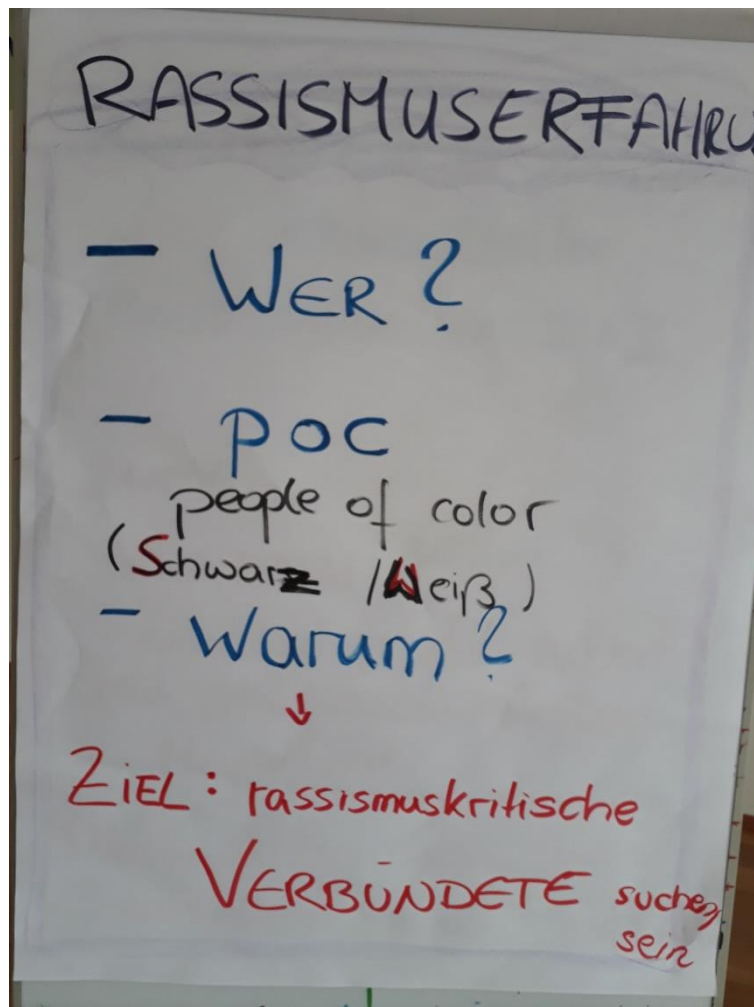 RASSISMUSERFAHRU
- WER ?
- POC
people of color
(Schwarz / Weiß)
- Warum ?
↓
ZIEL: rassismuskritische
VERBÜNDETE suchen,
sein